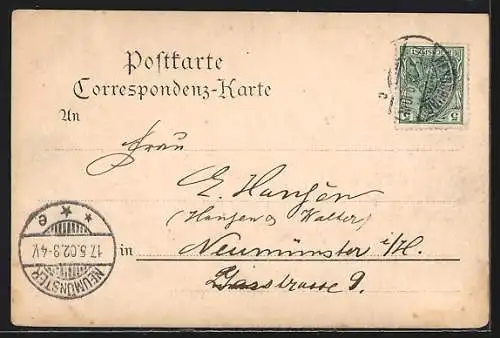 Postkarte
Correspondenz-Karte
An
Frau
E. Hansen
(Hansen & Walter)
in Neumünster i/H.
strasse 9.
NEUMÜNSTER
17.5.02.3-4V.
* * e
5 5